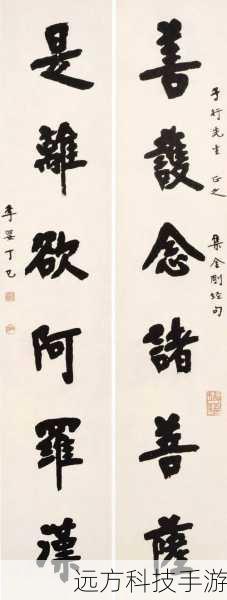 善護念諸菩薩
子行先生 正之
集金剛經句
是離欲阿羅漢
丁巳
远方科技手游